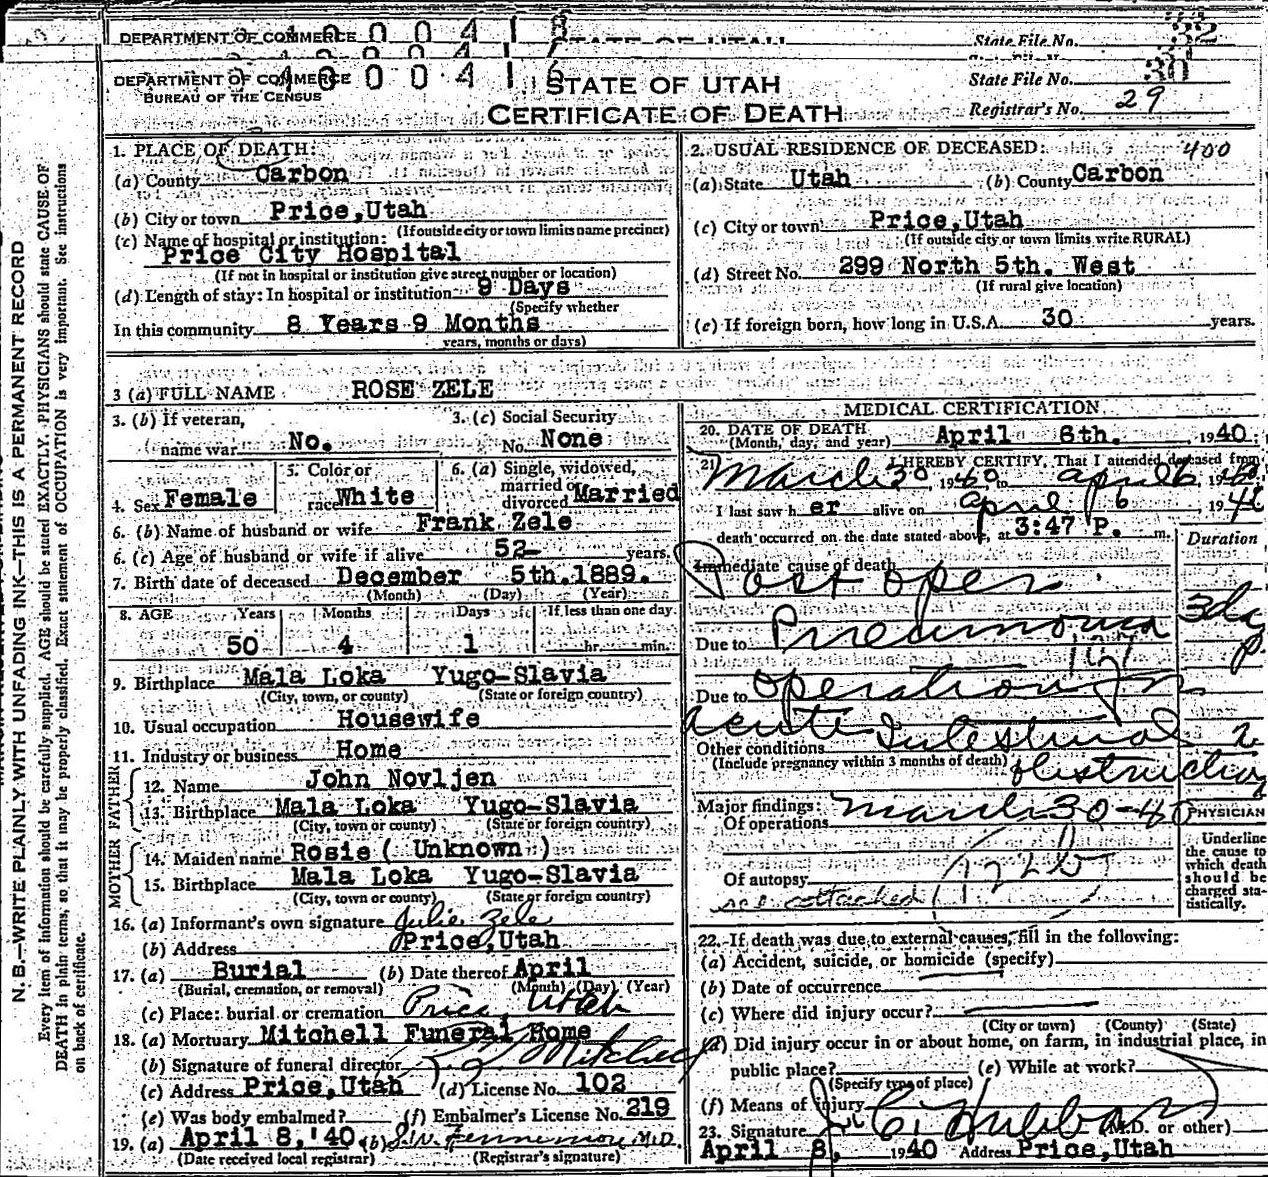 DEPARTMENT OF COMMERCE
STATE OF UTAH
State File No. 32
DEPARTMENT OF COMMERCE
BUREAU OF THE CENSUS
STATE OF UTAH
CERTIFICATE OF DEATH
State File No. 30
Registrar's No. 29
N. B.—WRITE PLAINLY WITH UNFADING INK—THIS IS A PERMANENT RECORD
Every item of information should be carefully supplied. AGE should be stated EXACTLY. PHYSICIANS should state CAUSE OF
DEATH in plain terms, so that it may be properly classified. Exact statement of OCCUPATION is very important. See instructions
on back of certificate.
1. PLACE OF DEATH:
(a) County Carbon
(b) City or town Price,Utah
(If outside city or town limits name precinct)
(c) Name of hospital or institution:
Price City Hospital
(If not in hospital or institution give street number or location)
(d) Length of stay: In hospital or institution 9 Days
(Specify whether
In this community 8 Years 9 Months
years, months or days)
2. USUAL RESIDENCE OF DECEASED: 400
(a) State Utah (b) County Carbon
(c) City or town Price,Utah
(If outside city or town limits write RURAL)
(d) Street No. 299 North 5th. West
(If rural give location)
(e) If foreign born, how long in U.S.A. 30 years.
3 (a) FULL NAME ROSE ZELE
3. (b) If veteran,
name war No.
3. (c) Social Security
No. None
4. Sex Female
5. Color or
race White
6. (a) Single, widowed,
married or
divorced Married
6. (b) Name of husband or wife Frank Zele
6. (c) Age of husband or wife if alive 52 years.
7. Birth date of deceased December 5th.1889.
(Month) (Day) (Year)
8. AGE Years Months Days If less than one day
50 4 1 hr. min.
9. Birthplace Mala Loka Yugo-Slavia
(City, town, or county) (State or foreign country)
10. Usual occupation Housewife
11. Industry or business Home
FATHER
12. Name John Novljen
13. Birthplace Mala Loka Yugo-Slavia
(City, town or county) (State or foreign country)
MOTHER
14. Maiden name Rosie ( Unknown )
15. Birthplace Mala Loka Yugo-Slavia
(City, town or county) (State or foreign country)
16. (a) Informant's own signature Julie Zele
(b) Address Price,Utah
17. (a) Burial (b) Date thereof April
(Burial, cremation, or removal) (Month) (Day) (Year)
(c) Place: burial or cremation Price, Utah
18. (a) Mortuary Mitchell Funeral Home
(b) Signature of funeral director Mitchell
(c) Address Price,Utah (d) License No. 102
(e) Was body embalmed? (f) Embalmer's License No. 219
19. (a) April 8,'40 (b) J.W. M.D.
(Date received local registrar) (Registrar's signature)
MEDICAL CERTIFICATION
20. DATE OF DEATH
(Month, day, and year) April 6th. 1940
21. I HEREBY CERTIFY, That I attended deceased from
March 30 1940 to april 6 1940
I last saw her alive on april 6 1940
death occurred on the date stated above, at 3:47 P. m.
Duration
Immediate cause of death
Post oper.
Due to Pneumonia 3 da
107
Due to operation for
acute Intestinal
Other conditions
(Include pregnancy within 3 months of death) obstruction
Major findings:
Of operations March 30-40
122b
Of autopsy
see attached
PHYSICIAN
Underline
the cause to
which death
should be
charged sta-
tistically.
22. If death was due to external causes, fill in the following:
(a) Accident, suicide, or homicide (specify)
(b) Date of occurrence
(c) Where did injury occur?
(City or town) (County) (State)
(d) Did injury occur in or about home, on farm, in industrial place, in
public place? (e) While at work?
(Specify type of place)
(f) Means of injury
23. Signature (M.D. or other)
April 8, 1940 Address Price,Utah